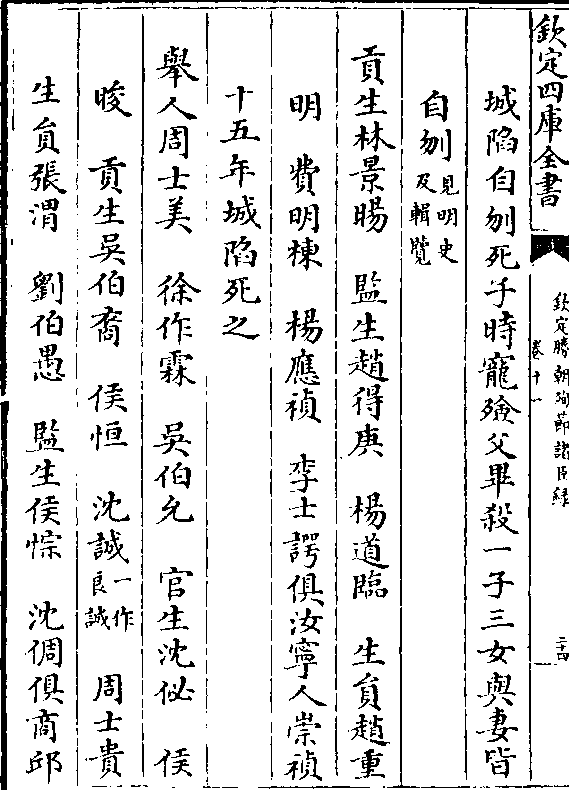 欽定四庫全書
欽定勝朝殉節諸臣録
卷十一
二十四
城陷自刎死子時寵殮父畢殺一子三女與妻皆
自刎見明史及輯覽
貢生林景暘　監生趙得庚　楊道臨　生員趙重
明　費明棟　楊應禎　李士諤俱汝寧人崇禎
十五年城陷死之
舉人周士美　徐作霖　吳伯允　官生沈佖　侯
晙　貢生吳伯裔　侯恒　沈誠一作良誠　周士貴
生員張渭　劉伯愚　監生侯悰　沈倜俱商邱